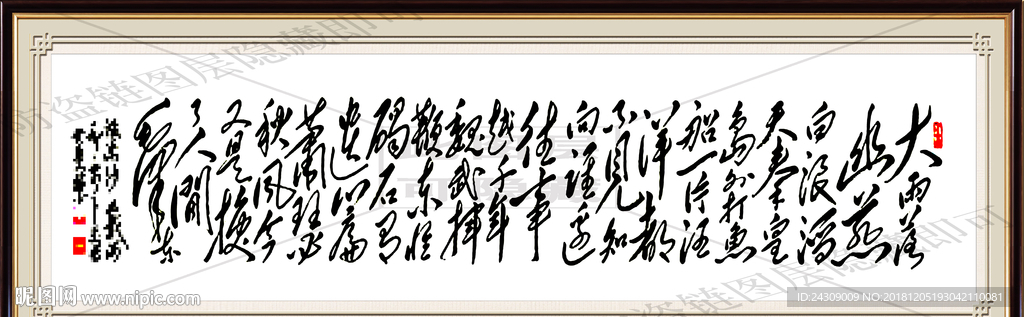 大雨落
幽燕
白浪滔
天秦皇
島外打魚
船一片汪
洋都
不見知
向誰邊
往事
越千年
魏武揮
鞭东临
碣石有
遗篇
蕭瑟
秋風今
又是換
了人間
毛澤东
昵图网 www.nipic.com
ID:24309009 NO:20181205193042110081